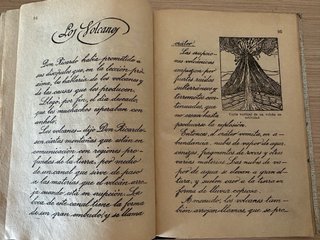 94
Los Volcanes
Don Ricardo había prometido a
sus discípulos que, en la lección pró-
xima, les hablaría de los volcanes y
de las causas que los producen.
Llegó, por fin, el día deseado,
que los muchachos esperaban con
anhelo.
Los volcanes - dijo Don Ricardo -
son ciertas montañas que están en
comunicación con regiones pro-
fundas de la tierra, por medio
de un canal que sirve de paso
a las materias que el volcán arro-
ja cuando está en erupción. La
boca de este canal tiene la forma
de un gran embudo, y se llama
95
cráter.
Las erupciones
volcánicas
empiezan por
fuertes ruidos
subterráneos y
terremotos con-
tinuados, que
no cesan hasta
producirse la explosión.
Corte vertical de un volcán en
actividad
Entonces el cráter vomita, en a-
bundancia, nubes de vapor de agua,
arroja fragmentos de rocas y otras
varias materias. Las nubes de va-
por de agua se elevan a gran al-
tura, y suelen caer a la tierra en
forma de lluvia copiosa.
A menudo, los volcanes tam-
bién arrojan llamas, que se pro-